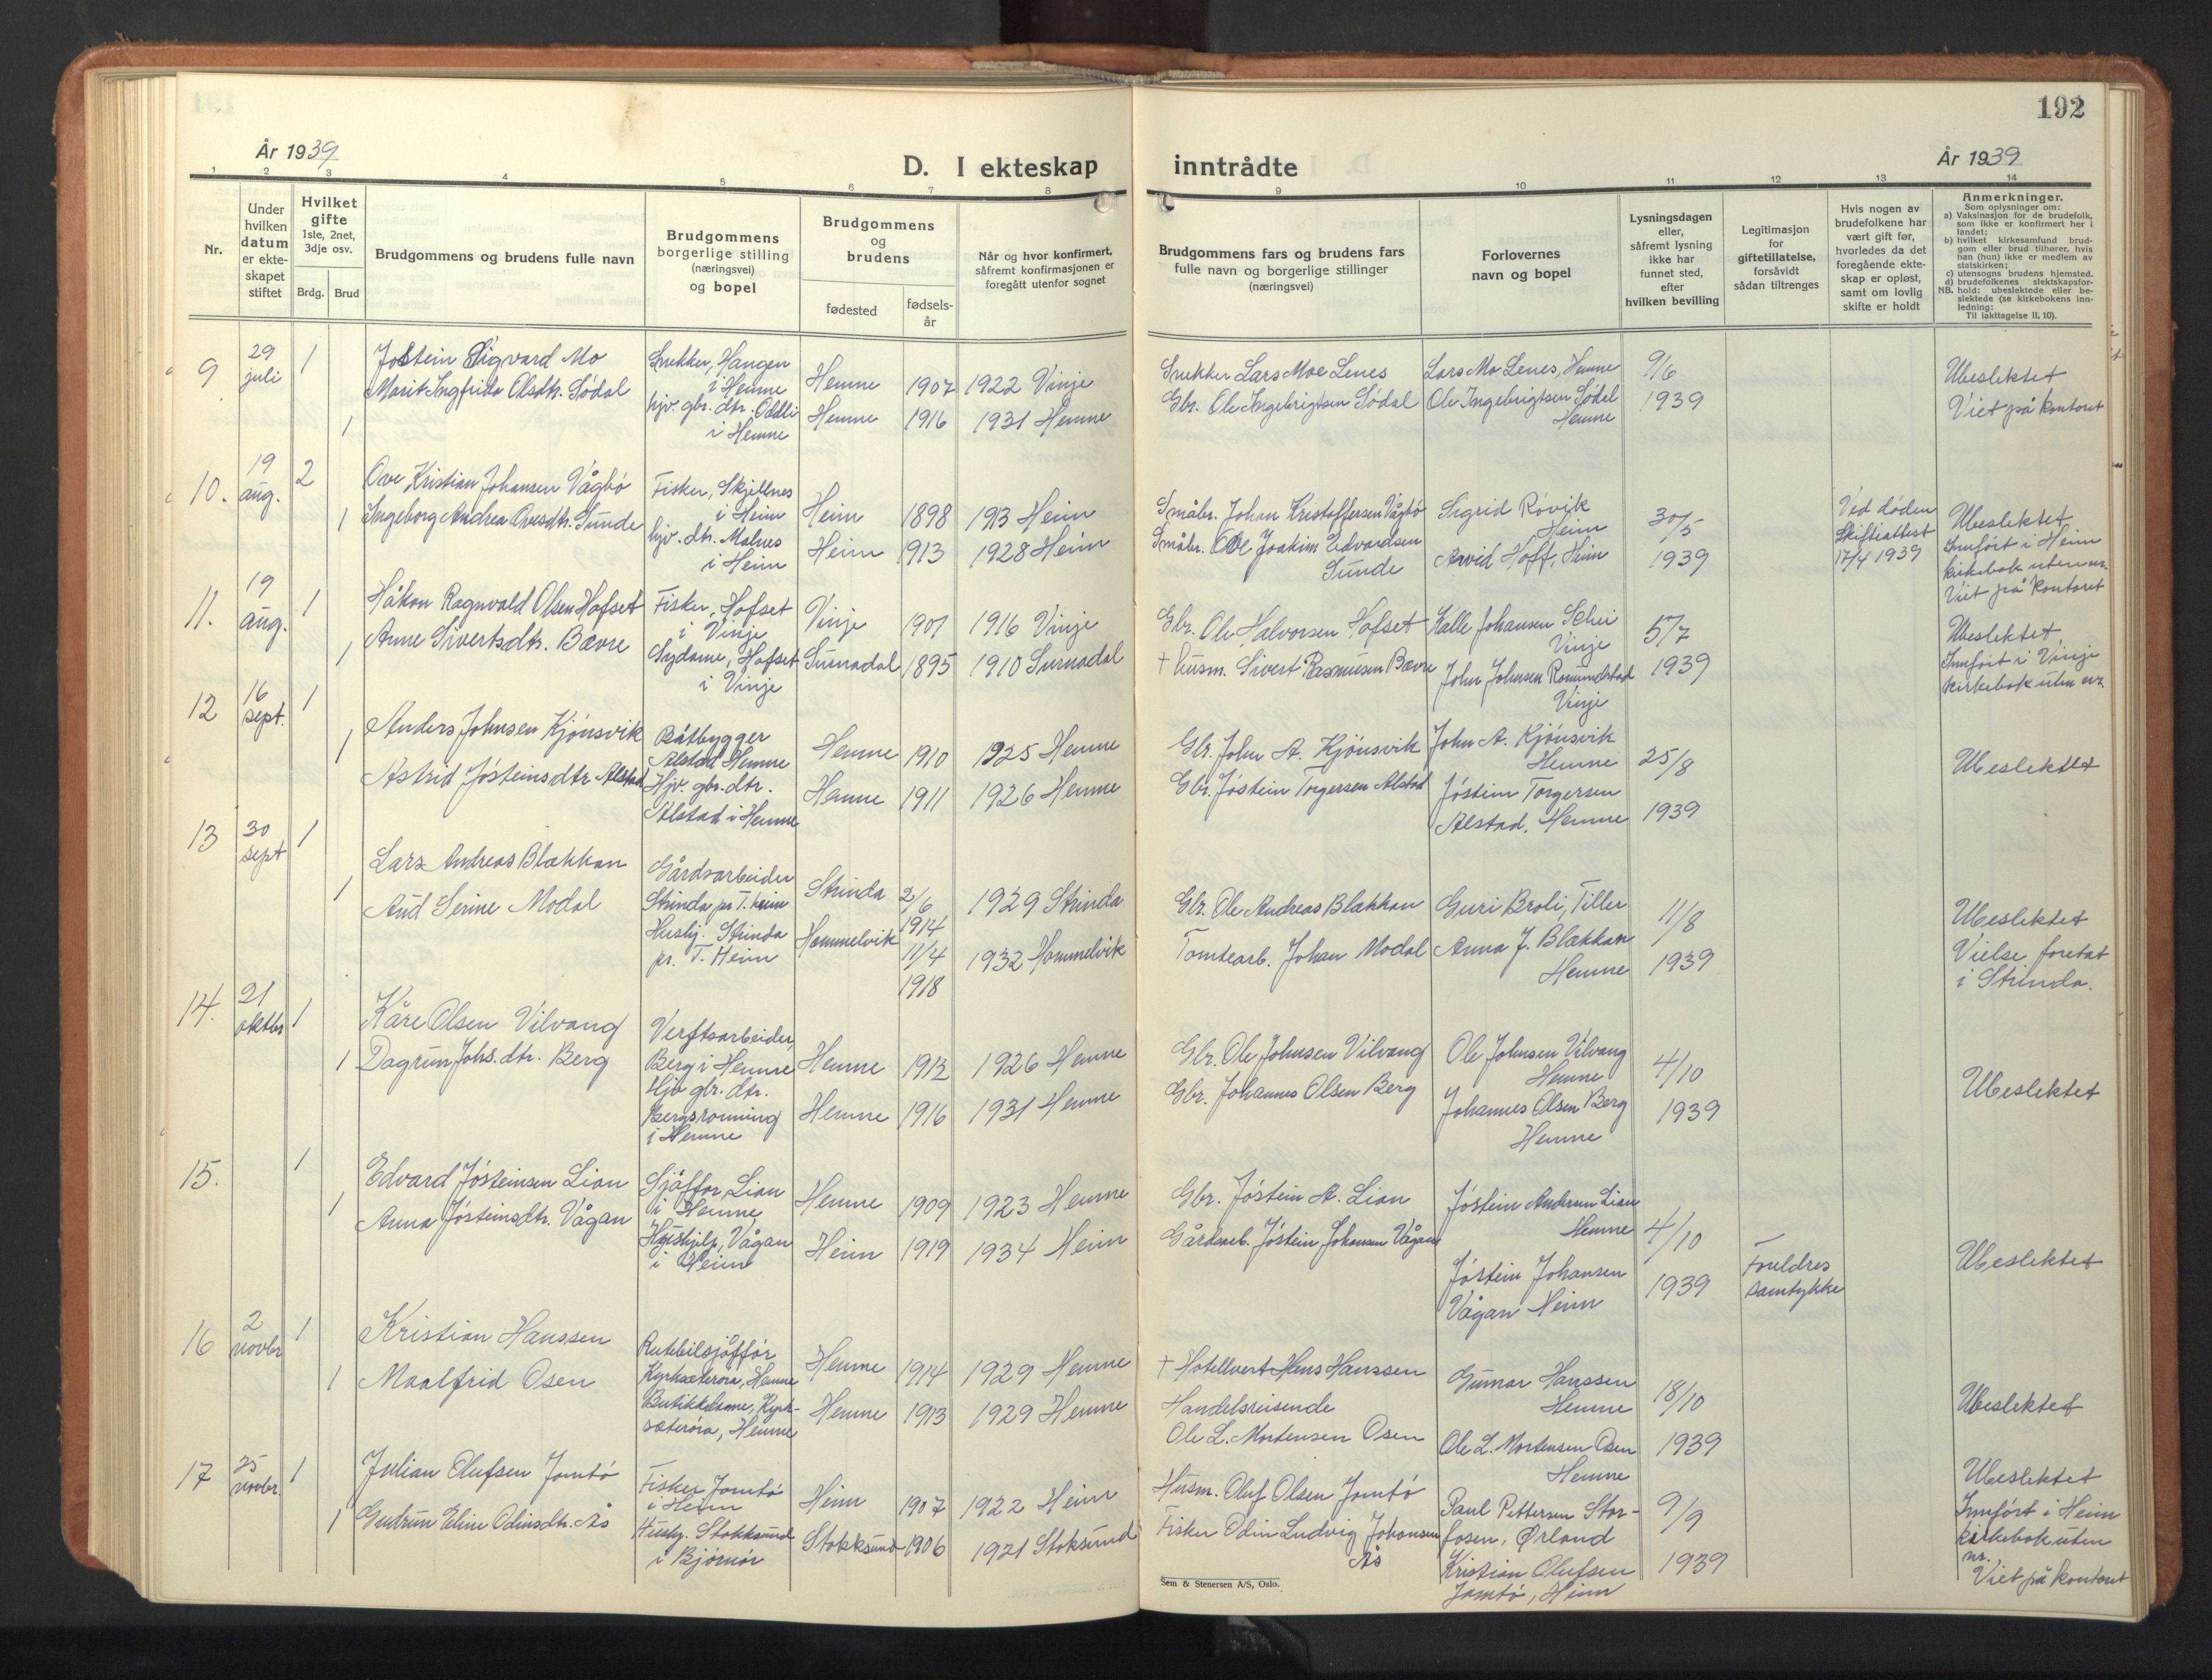 192
År 1939
D. I ekteskap inntrådte
År 1939
1 2 3 4 5 6 7 8 9 10 11 12 13 14
Nr.
Under hvilken datum er ekte-skapet stiftet
Hvilket gifte
1ste, 2net, 3dje osv.
Brdg. Brud
Brudgommens og brudens fulle navn
Brudgommens borgerlige stilling (næringsvei) og bopel
Brudgommens og brudens
fødested
fødsels-år
Når og hvor konfirmert, såfremt konfirmasjonen er foregått utenfor sognet
Brudgommens fars og brudens fars fulle navn og borgerlige stillinger (næringsvei)
Forlovernes navn og bopel
Lysningsdagen eller, såfremt lysning ikke har funnet sted, efter hvilken bevilling
Legitimasjon for giftetillatelse, forsåvidt sådan tiltrenges
Hvis nogen av brudefolkene har vært gift før, hvorledes da det foregående ekte-skap er opløst, samt om lovlig skifte er holdt
Anmerkninger.
Som oplysninger om:
a) Vaksinasjon for de brudefolk, som ikke er konfirmert her i landet;
b) hvilket kirkesamfund brud-gom eller brud tilhører, hvis han (hun) ikke er medlem av statskirken;
c) utensogns brudens hjemsted.
d) brudefolkenes slektskapsfor-
NB. hold: ubeslektede eller be-slektede (se kirkebokens inn-ledning:
Til iakttagelse II. 10).
9 29 juli 1
Jostein Sigvard Mo
Snekker, Haugen i Hemne
Hemne 1907 1922 Vinje
Snekker Lars Moe Lenes
Lars Mo Lenes, Hemne
9/6 1939
Ubeslektet
Viet på kontoret
1 Marit Ingfrida Olsdtr. Södal
hjv. gbr. dtr. Oddli i Hemne
Hemne 1916 1931 Hemne
Gbr. Ole Ingebrigtsen Södal
Ole Ingebrigtsen Södal
Hemne
10. 19 aug. 2
Ove Kristian Johansen Vågbö
Fisker, Skjellnes i Heim
Heim 1898 1913 Heim
Småbr. Johan Kristoffersen Vågbö
Sigrid Rövik
Heim
30/5 1939
Ved döden
Skifteattest
17/4 1939
Ubeslektet
Innfört i Heim
kirkebok uten nr.
Viet på kontoret
1 Ingeborg Andrea Ovesdtr. Sunde
hjv. dtr. Malnes i Heim
Heim 1913 1928 Heim
Småbr. Ove Joakim Edvardsen Sunde
Arvid Hoff, Heim
11. 19 aug. 1
Håkon Ragnvald Olsen Hofset
Fisker, Hofset i Vinje
Vinje 1901 1916 Vinje
Gbr. Ole Halvorsen Hofset
Kalle Johansen Selvi
Vinje
5/7 1939
Ubeslektet,
Innfört i Vinje
kirkebok uten nr.
1 Anne Sivertsdtr. Bævre
Sydame, Hofset i Vinje
Surnadal 1895 1910 Surnadal
† husm. Sivert Rasmussen Bævre
John Johnsen Romundstad
Vinje
12 16 sept. 1
Anders Johnsen Kjönsvik
Båtbygger
Alstad Hemne
Hemne 1910 1925 Hemne
Gbr. John A. Kjönsvik
John A. Kjönsvik
Hemne
25/8 1939
Ubeslektet
1 Astrid Jösteinsdtr. Alstad
Hjv. gbr. dtr.
Alstad i Hemne
Hemne 1911 1926 Hemne
Gbr. Jöstein Torgersen Alstad
Jöstein Torgersen
Alstad, Hemne
13 30 sept 1
Lars Andreas Blækkan
Gårdsarbeider
Strinda pr T.heim
Strinda 2/6 1914 1929 Strinda
Gbr. Ole Andreas Blækkan
Guri Broli, Tiller
11/8 1939
Ubeslektet
Vielse foretat
i Strinda.
1 Aud Serine Modal
Hushj. Strinda
pr. T. Heim
Hommelvik 11/4 1918 1932 Hommelvik
Tomtearb. Johan Modal
Anna J. Blækkan
Hemne
14. 21 oktbr 1
Kåre Olsen Vilvang
Verftsarbeider,
Berg i Hemne
Hemne 1912 1926 Hemne
Gbr. Ole Johnsen Vilvang
Ole Johnsen Vilvang
Hemne
4/10 1939
Ubeslektet
1 Dagrun Johs.dtr. Berg
Hjv gbr. dtr.
Bergsrönning
i Hemne
Hemne 1916 1931 Hemne
Gbr. Johannes Olsen Berg
Johannes Olsen Berg
Hemne
15. 1
Edvard Jösteinsen Lian
Sjåffor, Lian i Hemne
Hemne 1909 1923 Hemne
Gbr. Jöstein A. Lian
Jöstein Andersen Lian
Hemne
4/10 1939
Foreldres samtykke
Ubeslektet
1 Anna Jösteinsdtr. Vågan
Hushjelp, Vågan
i Heim
Heim 1919 1934 Heim
Gårdarb. Jöstein Johansen Vågan
Jöstein Johansen
Vågan Heim
16 2 novbr 1
Kristian Hanssen
Rutebilsjåfför
Kyrksæterøra, Hemne
Hemne 1914 1929 Hemne
† Hotellvert Hans Hanssen
Gunnar Hanssen
Hemne
18/10 1939
Ubeslektet
1 Maalfrid Osen
Butikkdame, Kyrk-sæteröra, Hemne
Hemne 1913 1929 Hemne
Handelsreisende
Ole L. Mortensen Osen
Ole L. Mortensen Osen
Hemne
17 25 novbr 1
Julian Olufsen Jamtö
Fisker Jamtö
i Heim
Heim 1907 1922 Heim
Husm. Oluf Olsen Jamtö
Paul Pettersen Stor-fosen, Ørland
9/9 1939
Ubeslektet
Innfört i Heim
kirkebok uten
nr.
Viet på kontoret
1 Gudrun Eline Odinsdtr. Ås
Hushj. Stokksund
i Björnör
Stokksund 1906 1921 Stoksund
Fisker Odin Ludvig Johansen Ås
Kristian Olufsen
Jamtö, Heim
Sem & Stenersen A/S, Oslo.